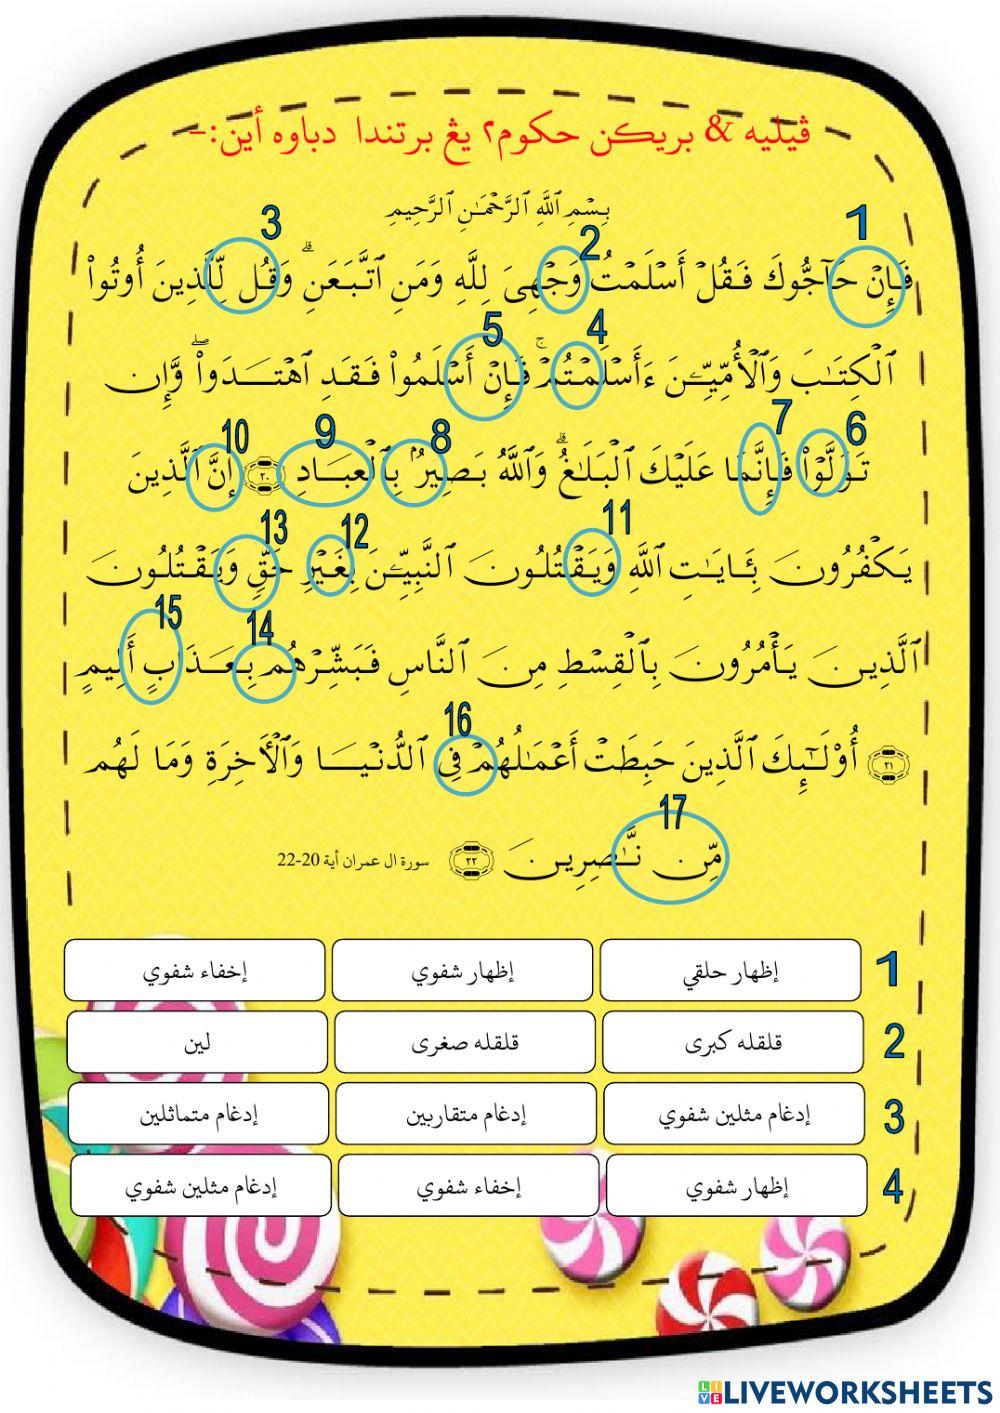 ڤيليه & بريكن حكوم٢ يڠ برتندا دباوه أين:-
بِسْمِ ٱللَّهِ ٱلرَّحْمَـٰنِ ٱلرَّحِيمِ
1 2 3
فَإِنْ حَآجُّوكَ فَقُلْ أَسْلَمْتُ وَجْهِىَ لِلَّهِ وَمَنِ ٱتَّبَعَنِ ۗ وَقُل لِّلَّذِينَ أُوتُوا۟
4 5
ٱلْكِتَـٰبَ وَٱلْأُمِّيِّـۧنَ ءَأَسْلَمْتُمْ ۚ فَإِنْ أَسْلَمُوا۟ فَقَدِ ٱهْتَدَوا۟ ۖ وَّإِن
6 7 8 9 10
تَوَلَّوْا۟ فَإِنَّمَا عَلَيْكَ ٱلْبَلَـٰغُ ۗ وَٱللَّهُ بَصِيرٌۢ بِٱلْعِبَادِ ٢٠ إِنَّ ٱلَّذِينَ
11 12 13
يَكْفُرُونَ بِـَٔايَـٰتِ ٱللَّهِ وَيَقْتُلُونَ ٱلنَّبِيِّـۧنَ بِغَيْرِ حَقٍّ وَيَقْتُلُونَ
14 15
ٱلَّذِينَ يَأْمُرُونَ بِٱلْقِسْطِ مِنَ ٱلنَّاسِ فَبَشِّرْهُم بِعَذَابٍ أَلِيمٍ
16
٢١ أُو۟لَـٰٓئِكَ ٱلَّذِينَ حَبِطَتْ أَعْمَـٰلُهُمْ فِى ٱلدُّنْيَا وَٱلْـَٔاخِرَةِ وَمَا لَهُم
17
مِّن نَّـٰصِرِينَ ٢٢ سورة ال عمران أية 20-22
1 إظهار حلقي إظهار شفوي إخفاء شفوي
2 قلقله كبرى قلقله صغرى لين
3 إدغام مثلين شفوي إدغام متقاربين إدغام متماثلين
4 إظهار شفوي إخفاء شفوي إدغام مثلين شفوي
LIVE LIVEWORKSHEETS